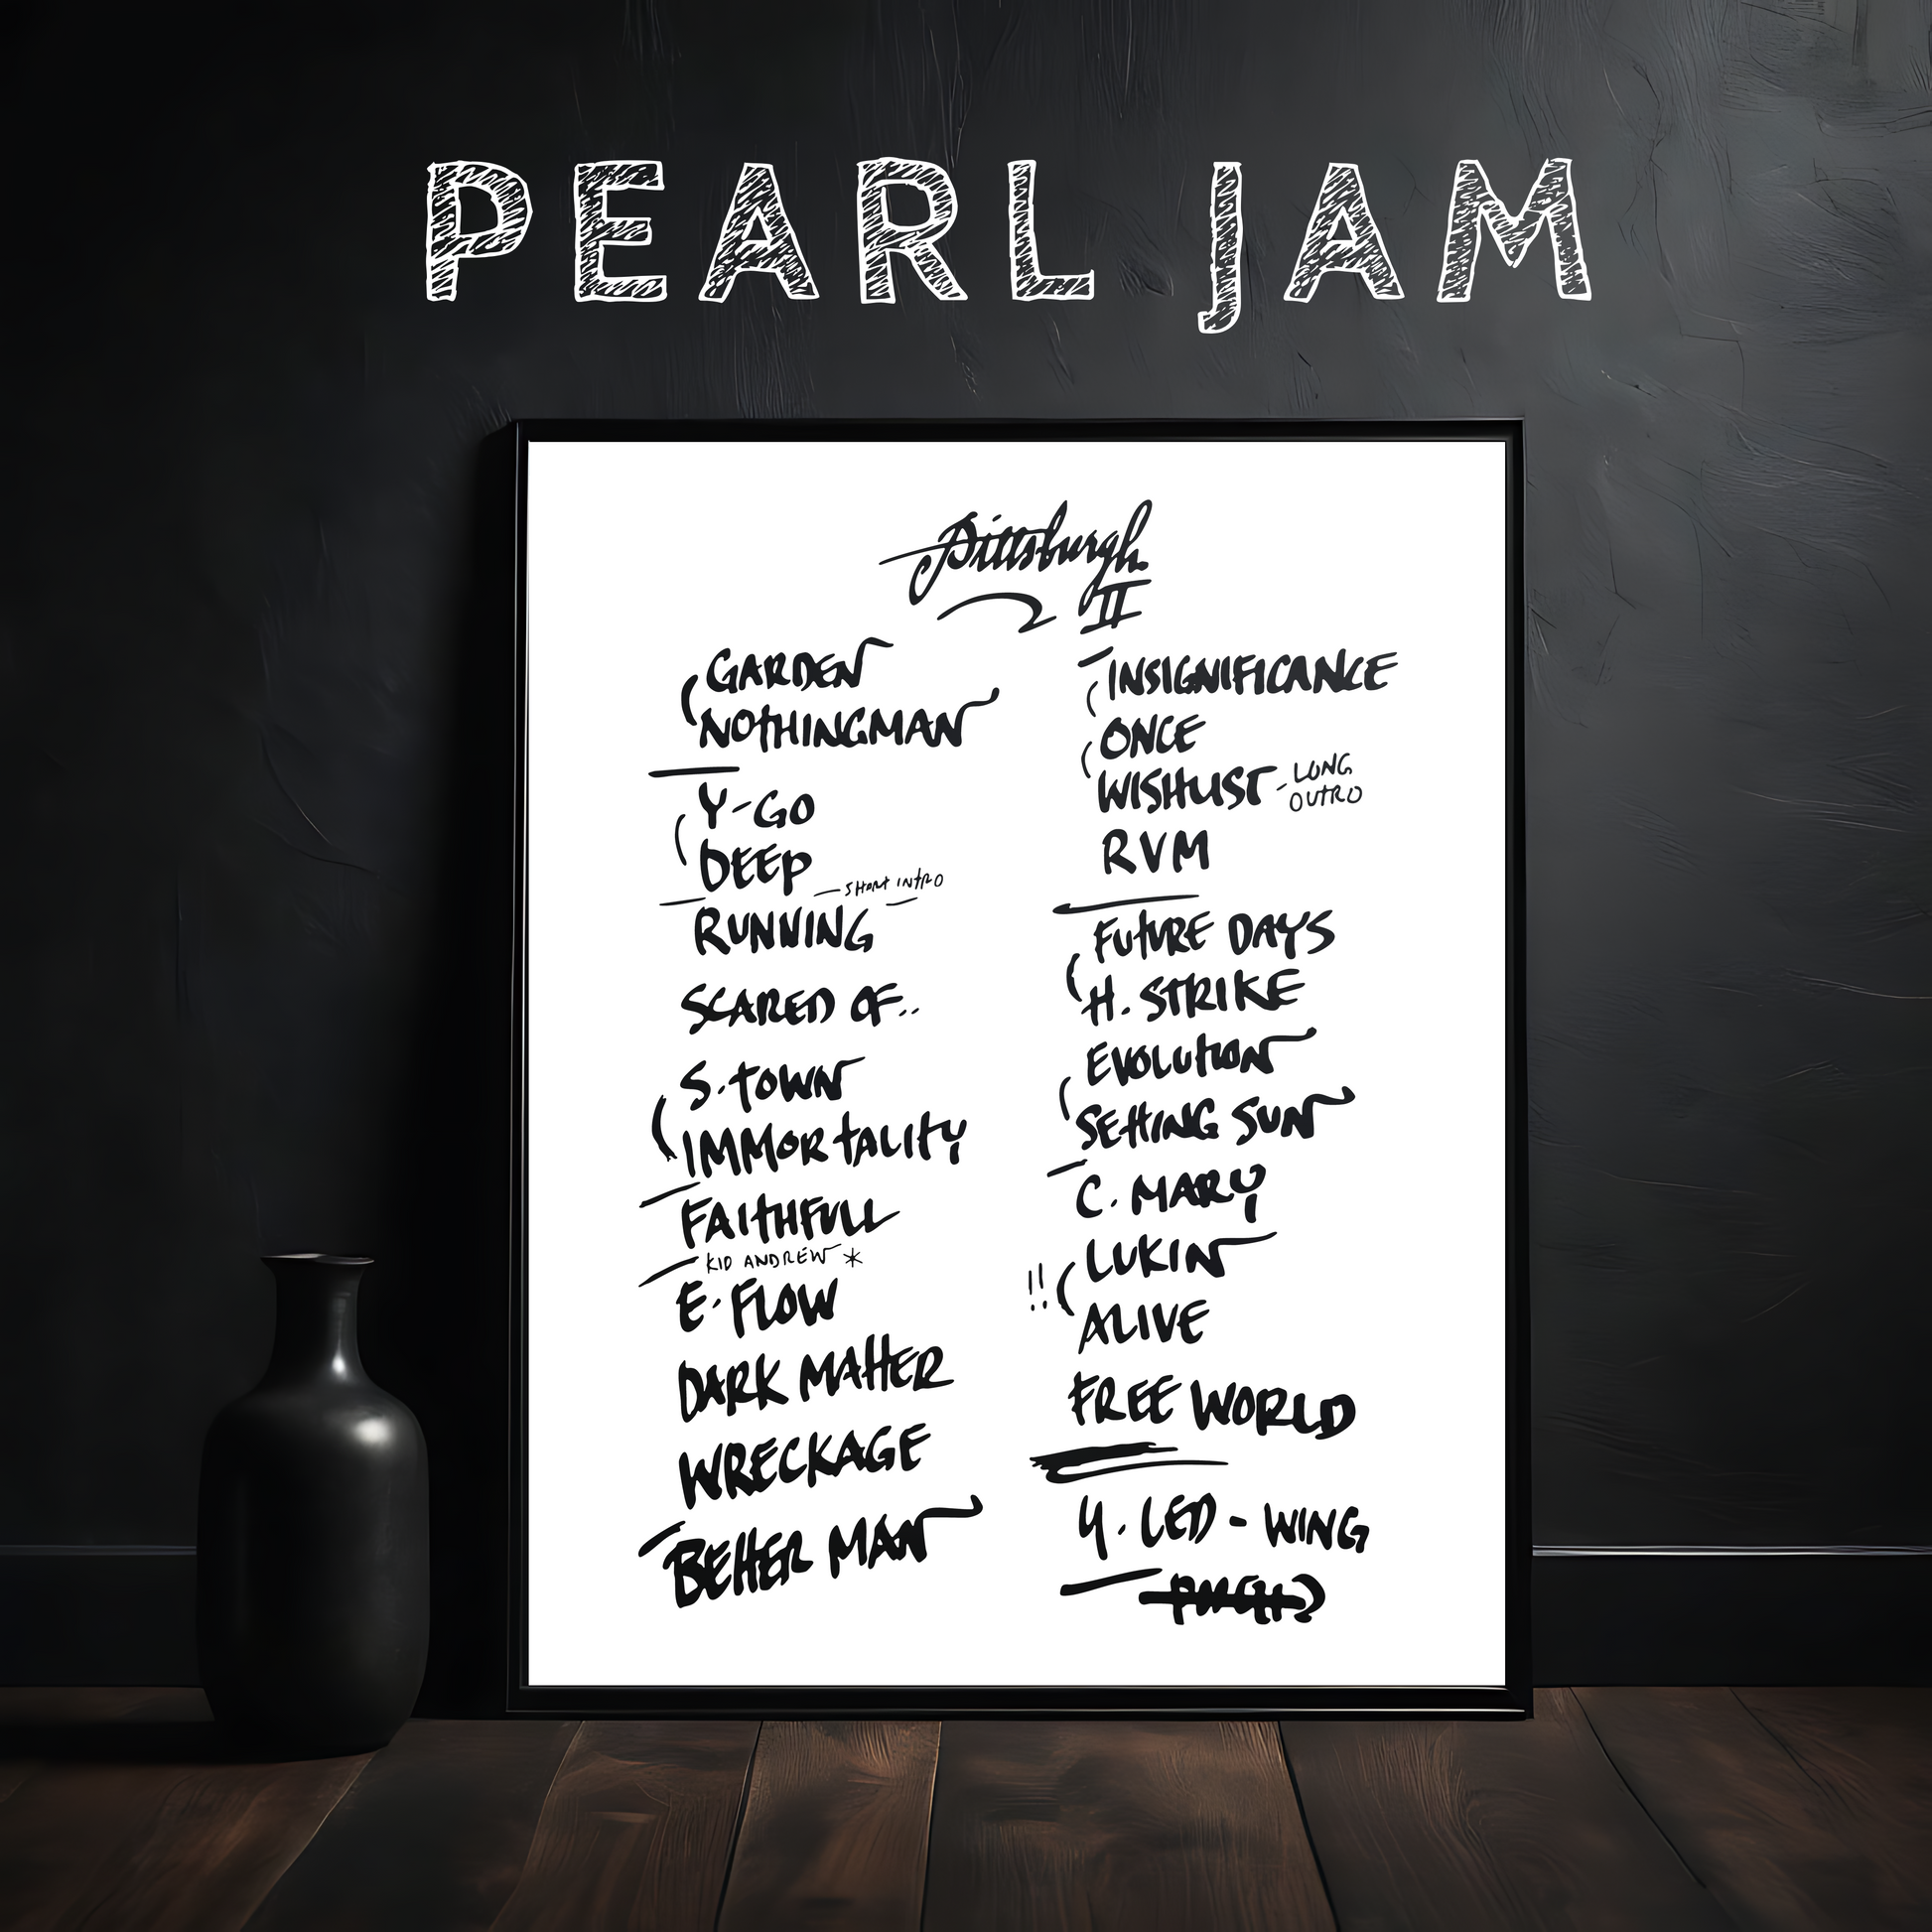 PEARL JAM
Pittsburgh
II
GARDEN
NOTHINGMAN
Y-GO
DEEP
SHORT INTRO
RUNNING
SCARED OF..
S.TOWN
IMMORTALITY
FAITHFULL
KID ANDREW *
E.FLOW
DARK MATTER
WRECKAGE
BETTER MAN
INSIGNIFICANCE
ONCE
WISHLIST - LONG
OUTRO
RVM
FUTURE DAYS
H. STRIKE
EVOLUTION
SETTING SUN
C. MARY
LUKIN
!!
ALIVE
FREE WORLD
Y. LED - WING